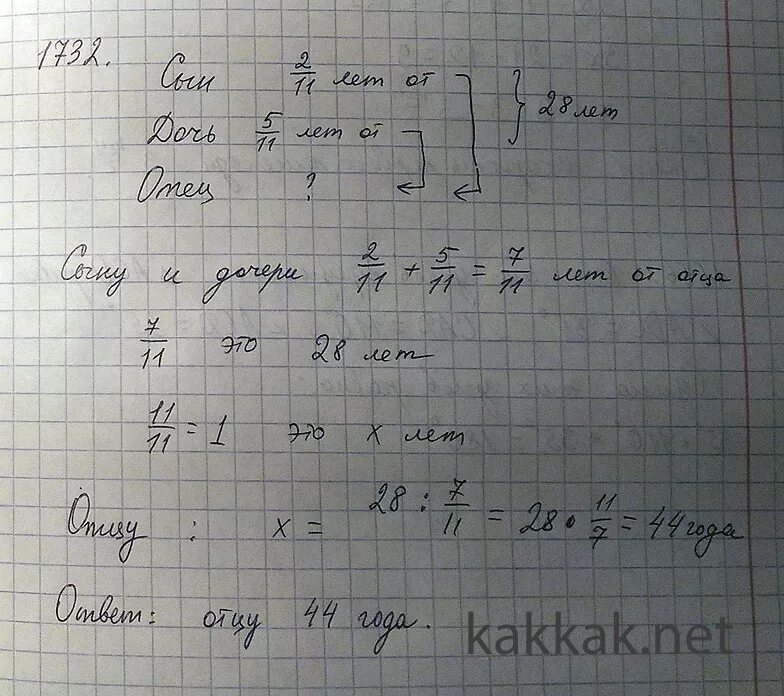 1732.
Сын 2/11 лет от
Дочь 5/11 лет от } 28 лет
Отец ?
Сыну и дочери 2/11 + 5/11 = 7/11 лет от отца
7/11 это 28 лет
11/11 = 1 это x лет
Отцу : x = 28 : 7/11 = 28 • 11/7 = 44 года
Ответ: отцу 44 года.
kakkak.net